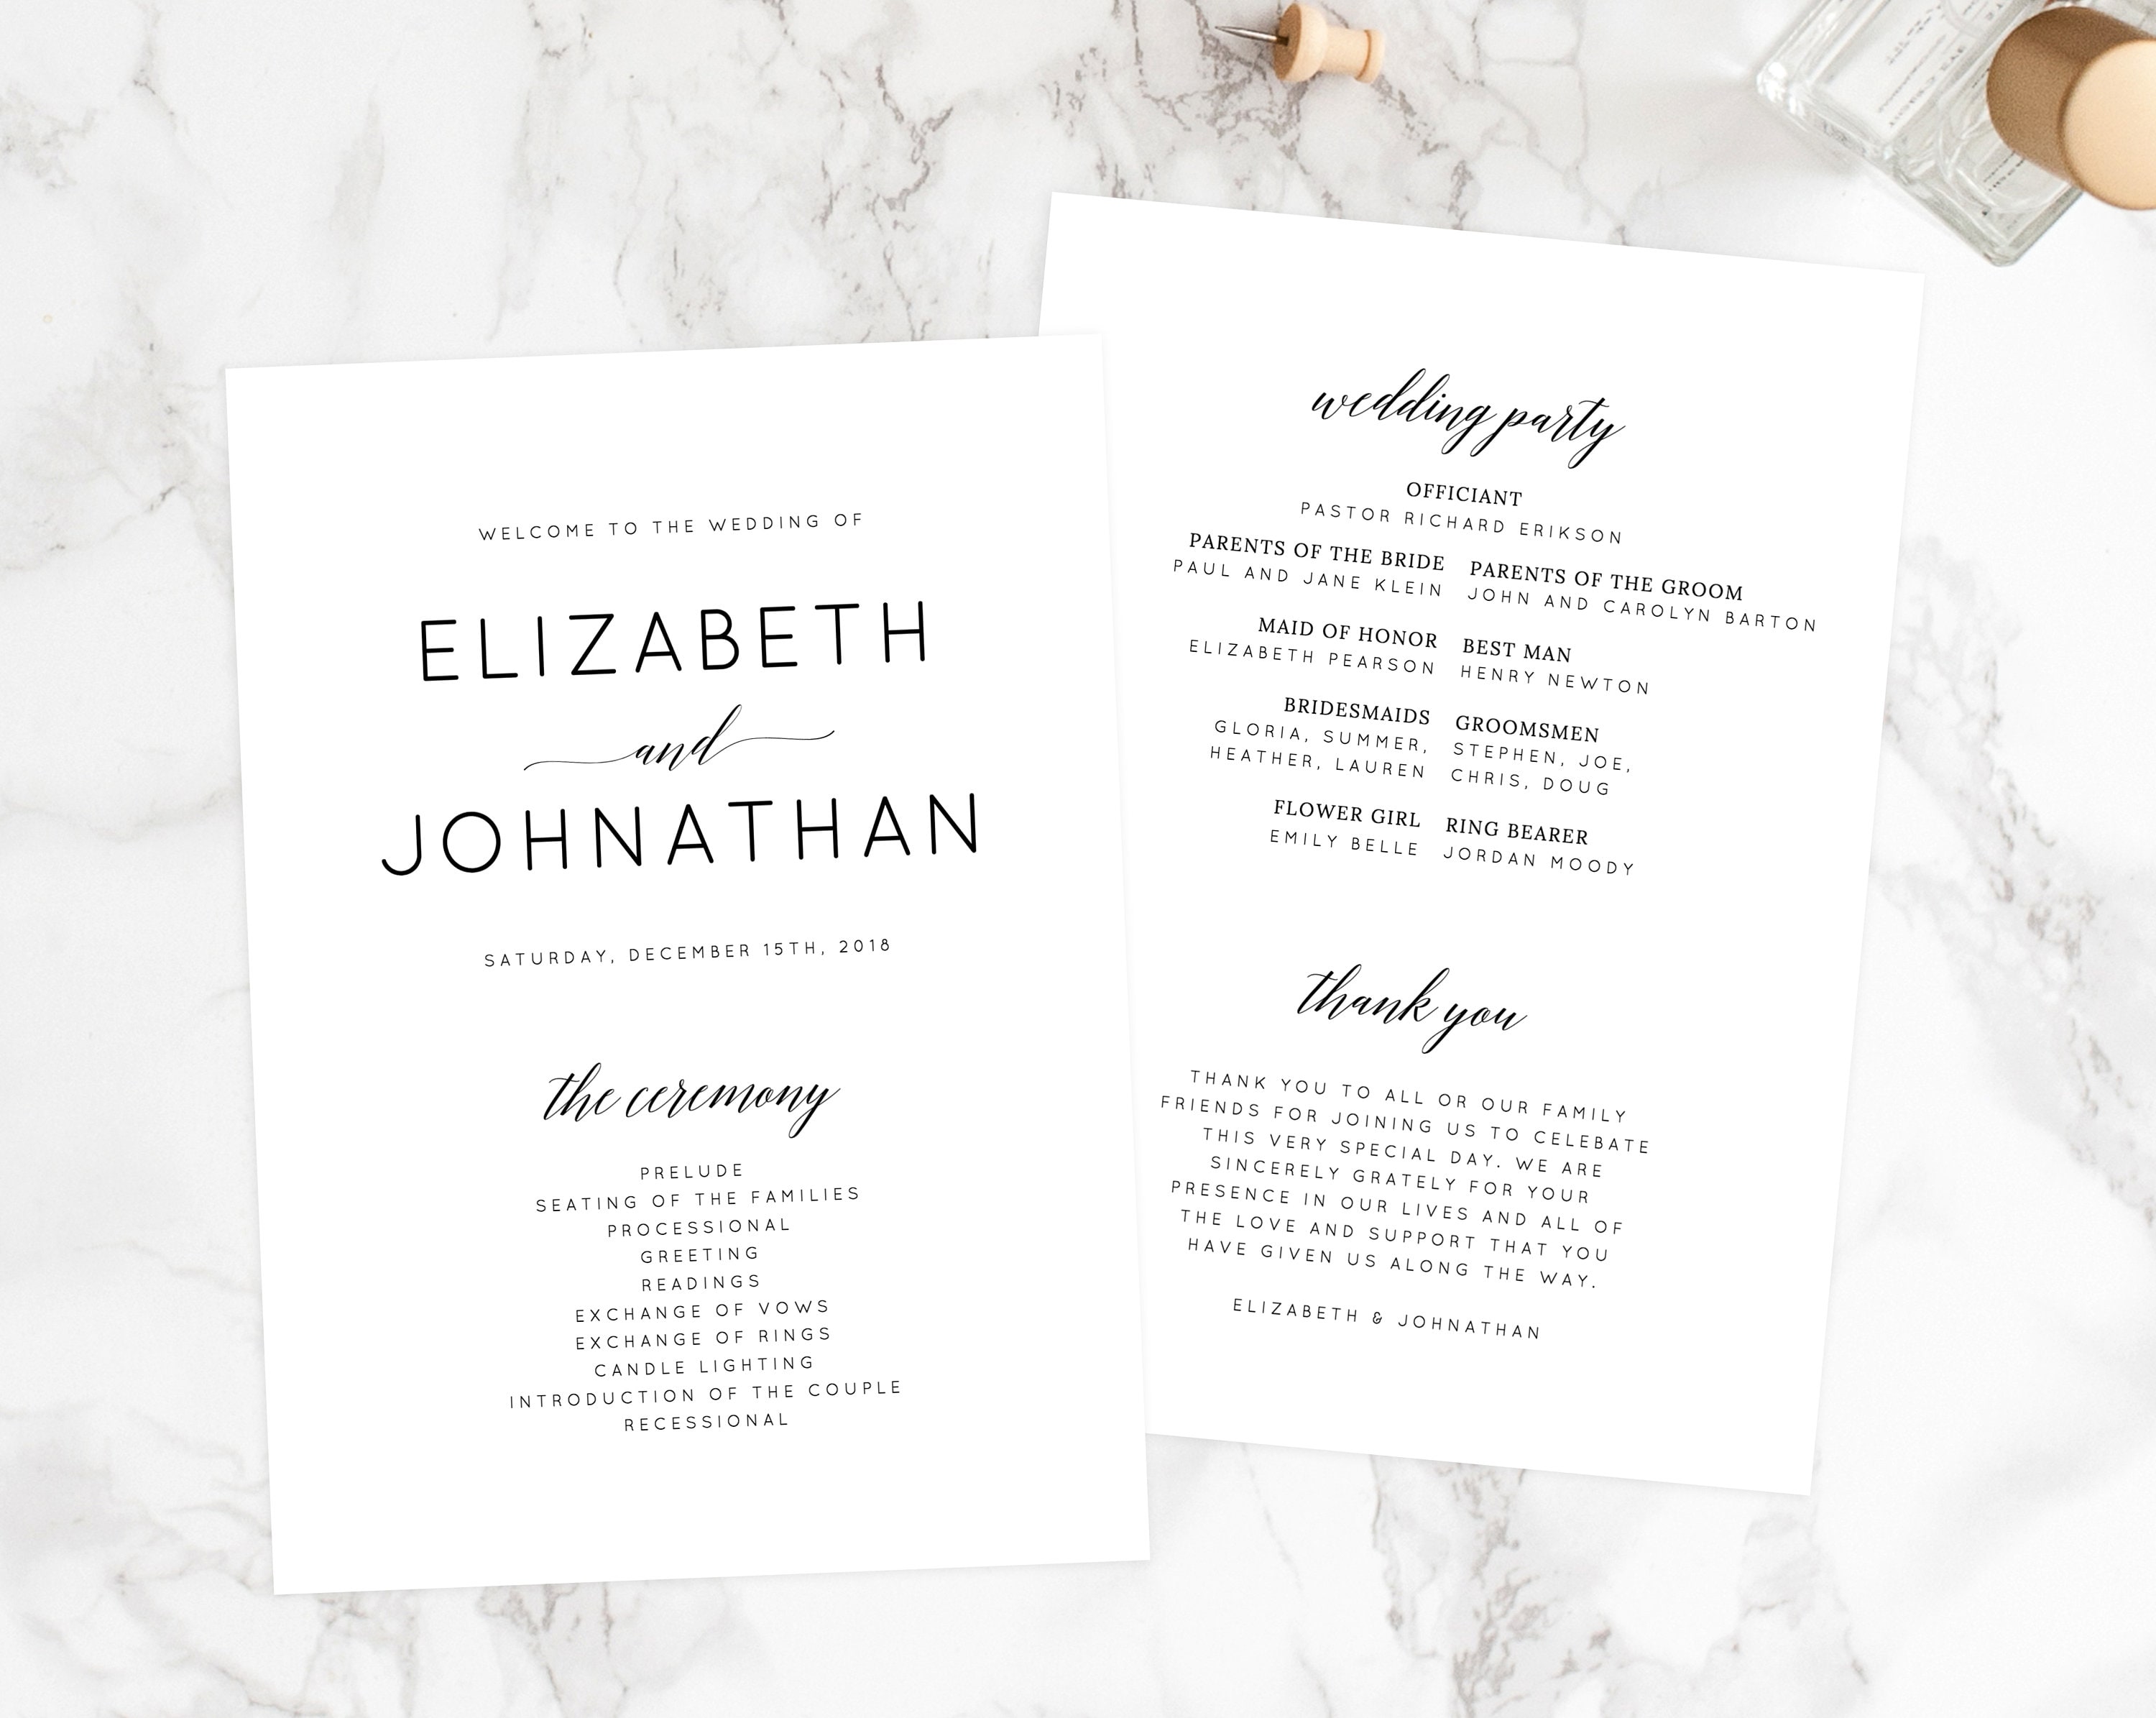 WELCOME TO THE WEDDING OF
ELIZABETH
and
JOHNATHAN
SATURDAY, DECEMBER 15TH, 2018
the ceremony
PRELUDE
SEATING OF THE FAMILIES
PROCESSIONAL
GREETING
READINGS
EXCHANGE OF VOWS
EXCHANGE OF RINGS
CANDLE LIGHTING
INTRODUCTION OF THE COUPLE
RECESSIONAL
wedding party
OFFICIANT
PASTOR RICHARD ERIKSON
PARENTS OF THE BRIDE
PAUL AND JANE KLEIN
PARENTS OF THE GROOM
JOHN AND CAROLYN BARTON
MAID OF HONOR
ELIZABETH PEARSON
BEST MAN
HENRY NEWTON
BRIDESMAIDS
GLORIA, SUMMER,
HEATHER, LAUREN
GROOMSMEN
STEPHEN, JOE,
CHRIS, DOUG
FLOWER GIRL
EMILY BELLE
RING BEARER
JORDAN MOODY
thank you
THANK YOU TO ALL OR OUR FAMILY
FRIENDS FOR JOINING US TO CELEBATE
THIS VERY SPECIAL DAY. WE ARE
SINCERELY GRATELY FOR YOUR
PRESENCE IN OUR LIVES AND ALL OF
THE LOVE AND SUPPORT THAT YOU
HAVE GIVEN US ALONG THE WAY.
ELIZABETH & JOHNATHAN